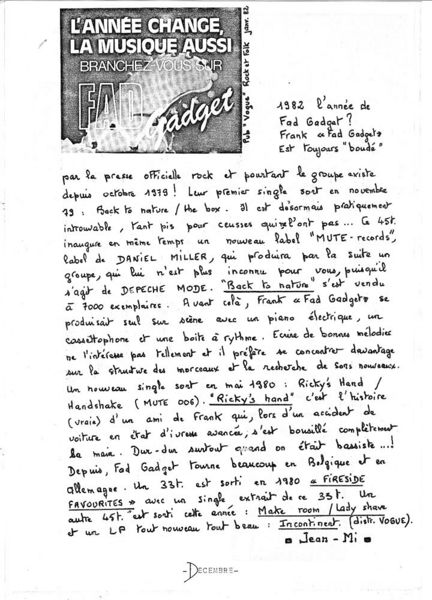 L'ANNÉE CHANGE,
LA MUSIQUE AUSSI
BRANCHEZ-VOUS SUR
FAD
Gadget
Pub "Vogue" Rock et Folk janv. 82
1982 l'année de
Fad Gadget ?
Frank « Fad Gadget »
Est toujours "boudé"
par la presse officielle rock et pourtant le groupe existe
depuis octobre 1979 ! Leur premier single sort en novembre
79 : Back to nature / the box. Il est désormais pratiquement
introuvable, tant pis pour ceusses qui l'ont pas ... Ce 45t.
inaugure en même temps un nouveau label "MUTE-records",
label de DANIEL MILLER, qui produira par la suite un
groupe, qui lui n'est plus inconnu pour vous, puisqu'il
s'agit de DEPECHE MODE. "Back to nature" s'est vendu
à 7000 exemplaires. Avant celà, Frank « Fad Gadget » se
produisait seul sur scène avec un piano électrique, un
cassettophone et une boite à rythme. Ecrire de bonnes mélodies
ne l'intéresse pas tellement et il préfère se concentrer davantage
sur la struture des morceaux et la recherche de sons nouveaux.
Un nouveau single sort en mai 1980 : Ricky's Hand /
Handshake (MUTE 006). "Ricky's hand" c'est l'histoire
(vraie) d'un ami de Frank qui, lors d'un accident de
voiture en état d'ivresse avancée, s'est bousillé complètement
la main. Dur-dur surtout quand on était bassiste...!
Depuis, Fad Gadget tourne beaucoup en Belgique et en
Allemagne. Un 33t. est sorti en 1980 « FIRESIDE
FAVOURITES » avec un single extrait de ce 33t. Un
autre 45t. est sorti cette année : Make room / Lady shave
et un LP tout nouveau tout beau : Incontinent (distr. VOGUE).
Jean-Mi
-DECEMBRE-